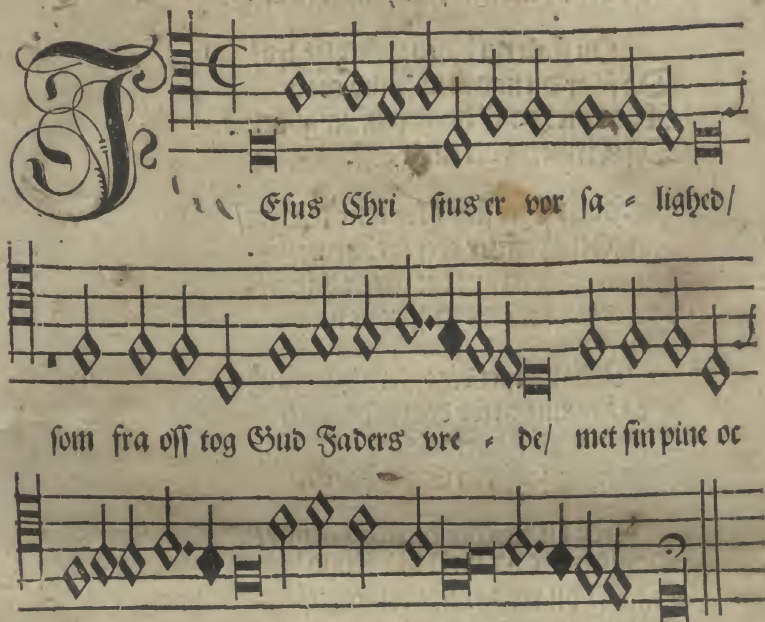 JEsus Chri stus er vor sa - lighed/
som fra oss tog Gud Faders vre - de/ met sin pine oc